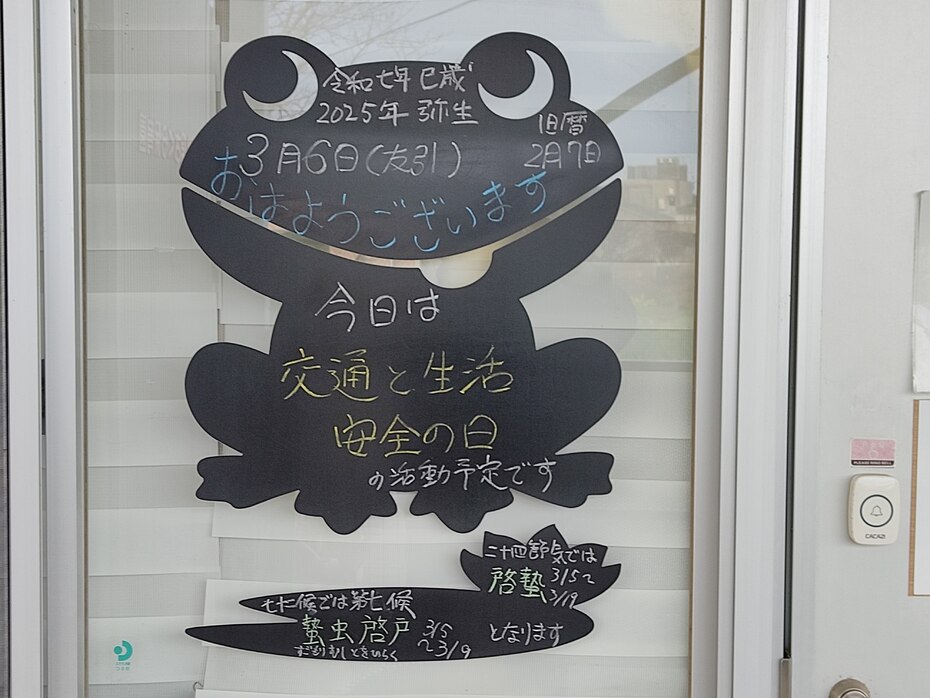 令和七年 巳歳
2025年 弥生
3月6日(友引)
旧暦
2月7日
おはようございます
今日は
交通と生活
安全の日
の活動予定です
二十四節気では
啓蟄 3/5〜
3/19
七十二候では第七候
蟄虫啓戸 3/5
〜3/9
となります
PLEASE RING BELL
CACAZI